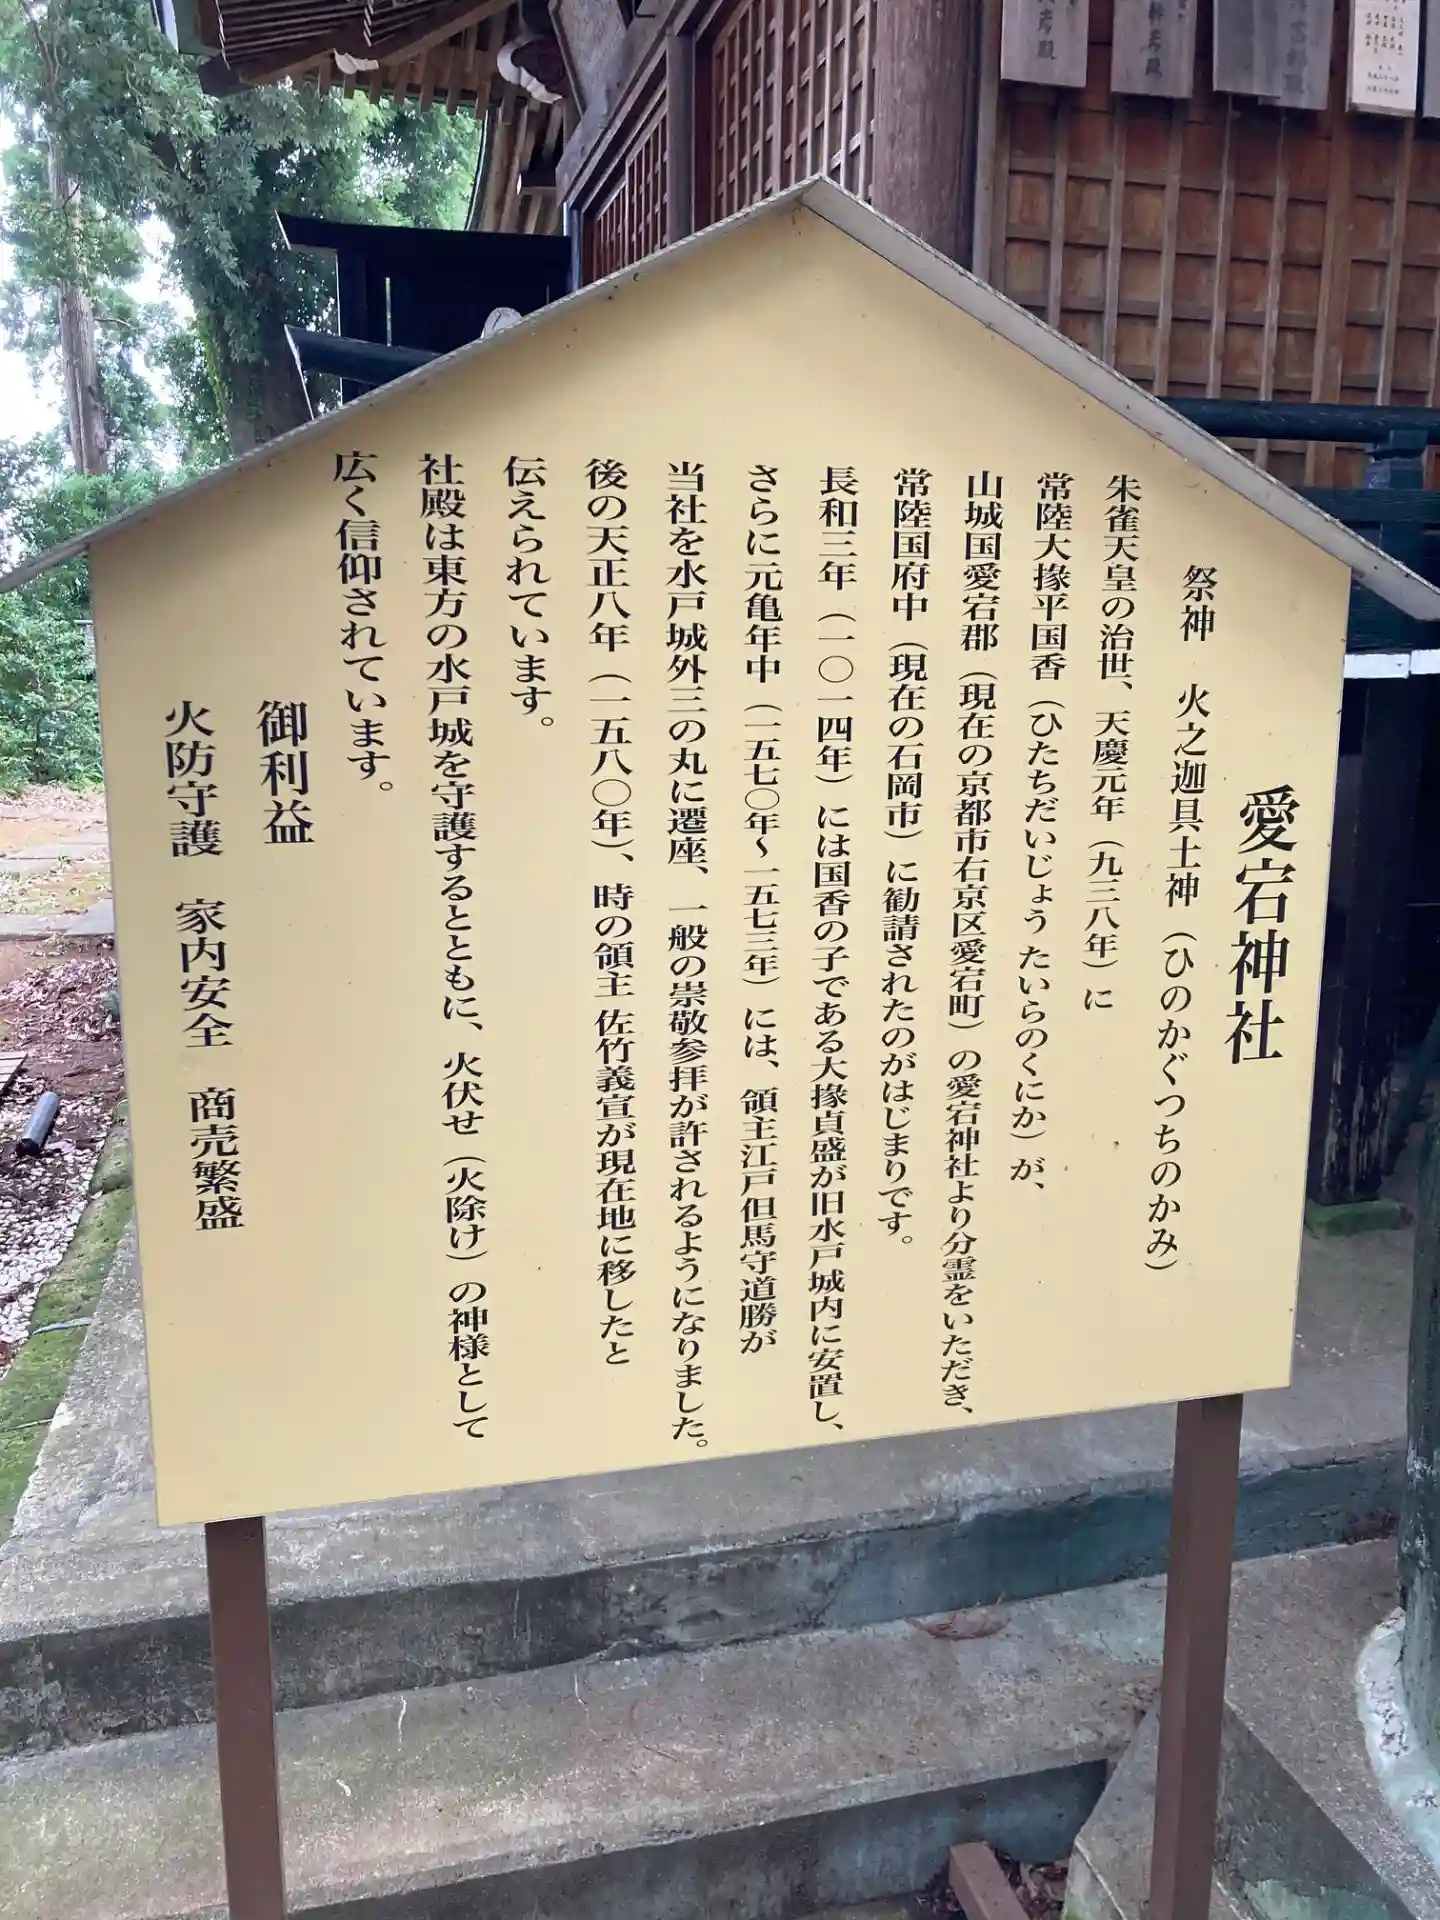 愛宕神社
祭神　火之迦具土神（ひのかぐつちのかみ）
朱雀天皇の治世、天慶元年（九三八年）に
常陸大掾平国香（ひたちだいじょう たいらのくにか）が、
山城国愛宕郡（現在の京都市右京区愛宕町）の愛宕神社より分霊をいただき、
常陸国府中（現在の石岡市）に勧請されたのがはじまりです。
長和三年（一〇一四年）には国香の子である大掾貞盛が旧水戸城内に安置し、
さらに元亀年中（一五七〇年～一五七三年）には、領主江戸但馬守道勝が
当社を水戸城外三の丸に遷座、一般の崇敬参拝が許されるようになりました。
後の天正八年（一五八〇年）、時の領主 佐竹義宣が現在地に移したと
伝えられています。
社殿は東方の水戸城を守護するとともに、火伏せ（火除け）の神様として
広く信仰されています。
御利益
火防守護　家内安全　商売繁盛